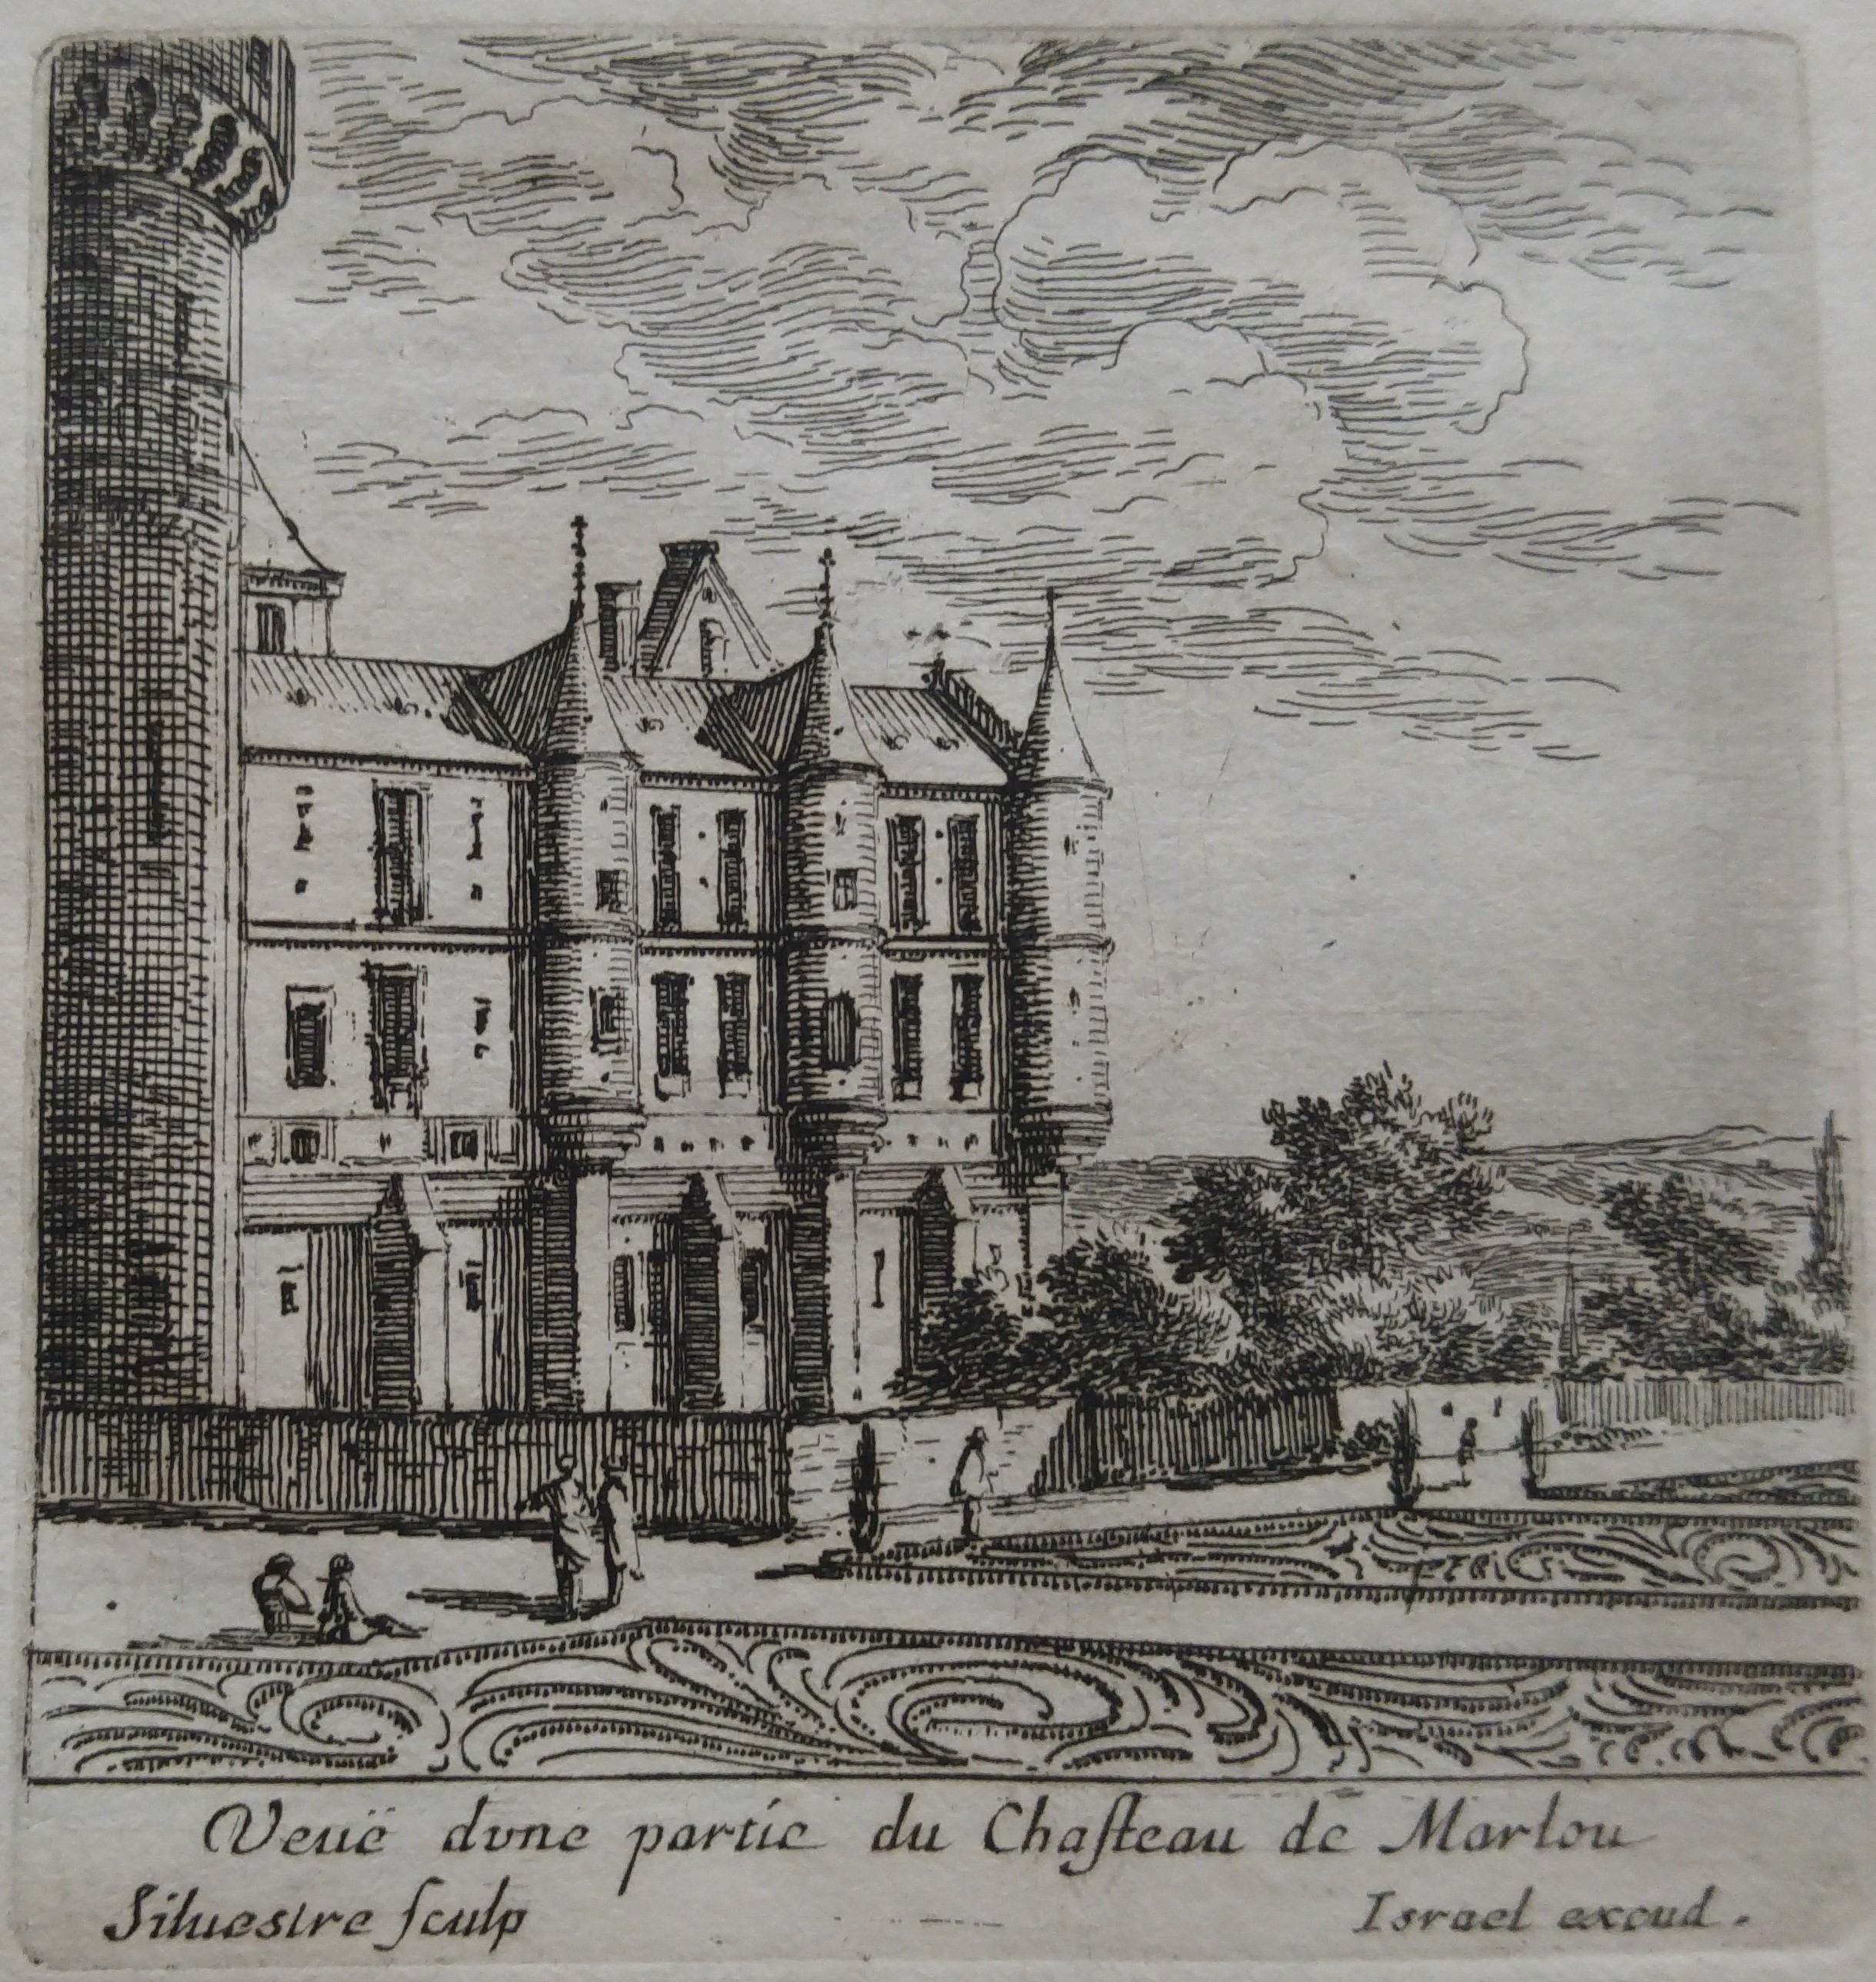 Veuë dvne partie du Chasteau de Marlou
Siluestre sculp
Israel excud.